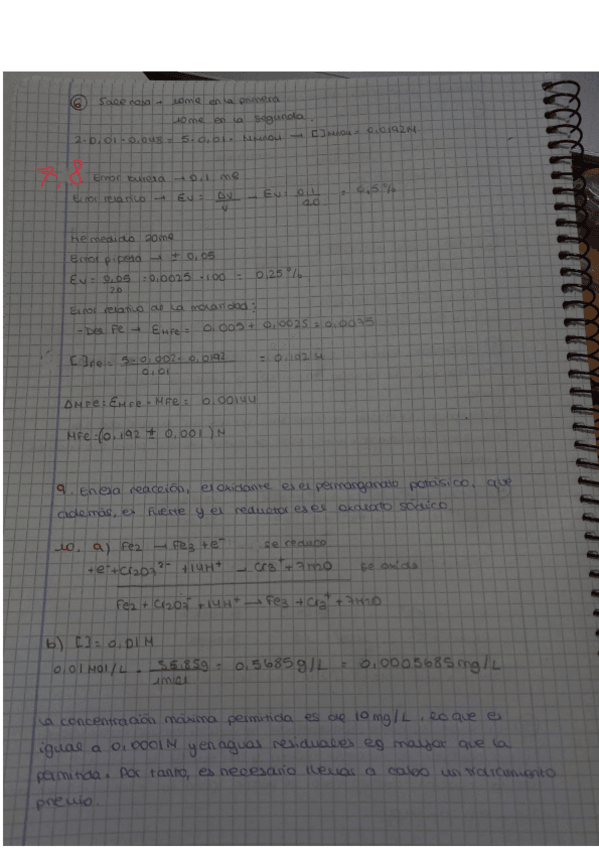 6 Sale rosa → 10ml en la primera
10ml en la segunda.
2·0,01·0,048 = 5·0,01· → [ ] = 0,0192M
7, 8 Error bureta → 0,1 ml
Error relativo → Ev = Δv/v → Ev = 0,1/20 = 0,5%
He medido 20ml
Error pipeta → ± 0,05
Ev = 0,05/20 = 0,0025 · 100 = 0,25%
Error relativo de la molaridad:
- Del Fe → EMFe = 0,005 + 0,0025 = 0,0075
[ ]Fe = 5 · 0,002 · 0,0192/0,01 = 0,192 M
ΔMFe = EMFe · MFe = 0,00144
MFe = (0,192 ± 0,001) M
9. En esa reacción, el oxidante es el permanganato potásico, que
además, es fuerte y el reductor es el oxalato sódico.
10. a) Fe2 → Fe3 + e⁻ se reduce
+e⁻ + Cr2O7²⁻ + 14H⁺ → Cr3⁺ + 7H2O se oxida
Fe2 + Cr2O7⁻ + 14H⁺ → Fe3 + Cr3⁺ + 7H2O
b) [ ] = 0,01M
0,01 Mol/L · 56,85g/1mol = 0,5685g/L = 0,0005685mg/L
La concentración máxima permitida es de 10 mg/L, lo que es
igual a 0,0001M y en aguas residuales es mayor que la
permitida. Por tanto, es necesario llevar a cabo un tratamiento
previo.